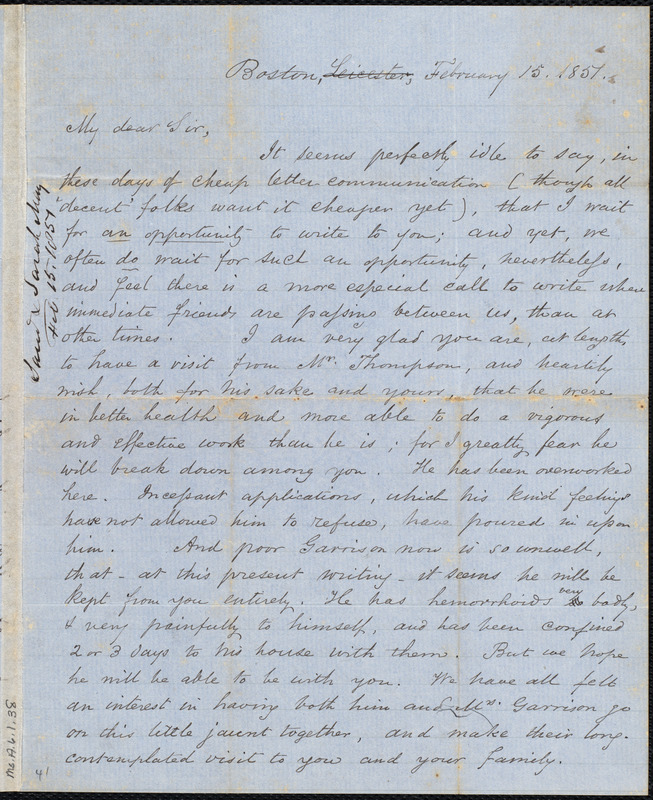 Boston, Leicester, February 15. 1851.
My dear Sir,
It seems perfectly idle to say, in
these days of cheap letter communication (though all
'decent' folks want it cheaper yet), that I wait
for an opportunity to write to you; and yet, we
often do wait for such an opportunity, nevertheless,
and feel there is a more especial call to write when
immediate friends are passing between us, than at
other times. I am very glad you are, at length,
to have a visit from Mr. Thompson, and heartily
wish, both for his sake and yours, that he were
in better health and more able to do a vigorous
and effective work than he is; for I greatly fear he
will break down among you. He has been overworked
here. Incessant applications, which his kind feelings
have not allowed him to refuse, have poured in upon
him. And poor Garrison now is so unwell,
that - at this present writing - it seems he will be
kept from you entirely. He has hemorrhoids very badly,
& very painfully to himself, and has been confined
2 or 3 days to his house with them. But we hope
he will be able to be with you. We have all felt
an interest in having both him and Mrs. Garrison go
on this little jaunt together, and make their long-
contemplated visit to you and your family.
Saml & Sarah May
Feb 15. 1851
Ms.A.6.1.38
41